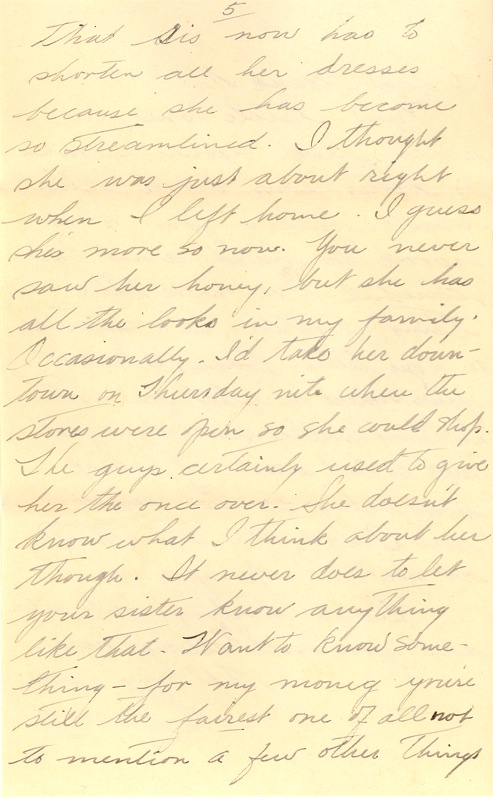 5
That sis now has to
shorten all her dresses
because she has become
so streamlined. I thought
she was just about right
when I left home. I guess
she's more so now. You never
saw her honey, but she has
all the looks in my family.
Occasionally. I'd take her down-
town on Thursday nite when the
stores were open so she could shop.
The guys certainly used to give
her the once over. She doesn't
know what I think about her
though. It never does to let
your sister know anything
like that - Want to know some-
thing - for my money you're
still the fairest one of all not
to mention a few other things